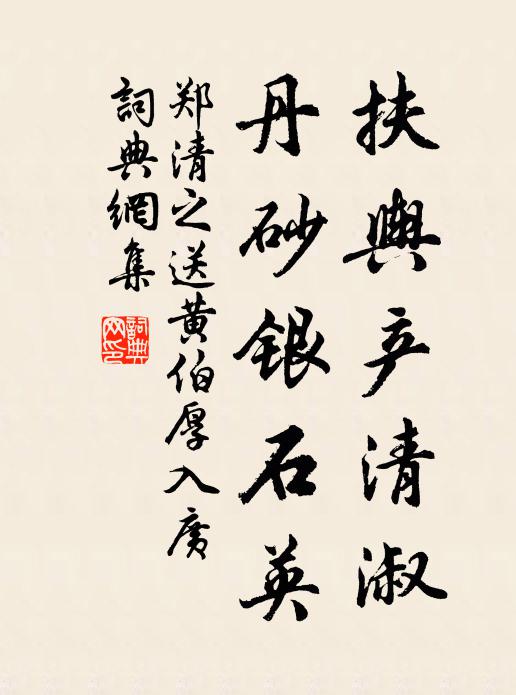 扶輿产清淑
丹砂銀石英
郑清之送黄伯厚入广
詞典網集
詞典网印